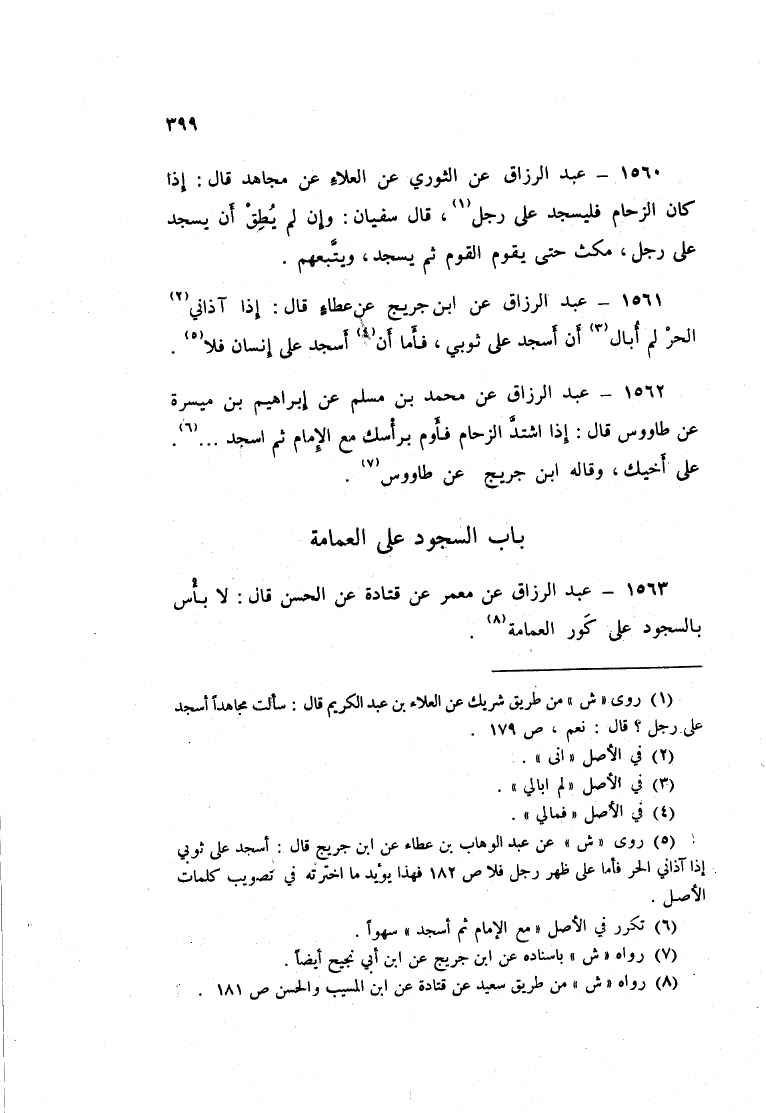 ٣٩٩
١٥٦٠ – عبد الرزاق عن الثوري عن العلاء عن مجاهد قال : إذا
كان الزحام فليسجد على رجل(١) ، قال سفيان : وإن لم يُطِقْ أن يسجد
على رجل ، مكث حتى يقوم القوم ثم يسجد ، ويتَّبعهم .
١٥٦١ – عبد الرزاق عن ابن جريج عن عطاء قال : إذا آذاني(٢)
الحرّ لم أُبال(٣) أن أسجد على ثوبي ، فأما أن(٤) أسجد على إنسان فلا(٥) .
١٥٦٢ – عبد الرزاق عن محمد بن مسلم عن إبراهيم بن ميسرة
عن طاووس قال : إذا اشتدَّ الزحام فأَوم برأسك مع الإمام ثم اسجد ...(٦) .
على أَخيك ، وقاله ابن جريج عن طاووس(٧) .
باب السجود على العمامة
١٥٦٣ – عبد الرزاق عن معمر عن قتادة عن الحسن قال : لا بأْس
بالسجود على كَور العمامة(٨) .
(١) روى « ش » من طريق شريك عن العلاء بن عبد الكريم قال : سألت مجاهداً أسجد
على رجل ؟ قال : نعم ، ص ١٧٩ .
(٢) في الأصل « انى » .
(٣) في الأصل «لم ابالي » .
(٤) في الأصل « فمالي » .
(٥) روى « ش » عن عبد الوهاب بن عطاء عن ابن جريج قال : أسجد على ثوبي
إذا آذاني الحر فأما على ظهر رجل فلا ص ١٨٢ فهذا يؤيد ما اخترته في تصويب كلمات
الأصل .
(٦) تكرر في الأصل « مع الإمام ثم أسجد » سهواً .
(٧) رواه « ش » باسناده عن ابن جريج عن ابن أبي نجيح أيضاً .
(٨) رواه « ش » من طريق سعيد عن قتادة عن ابن المسيب والحسن ص ١٨١ .